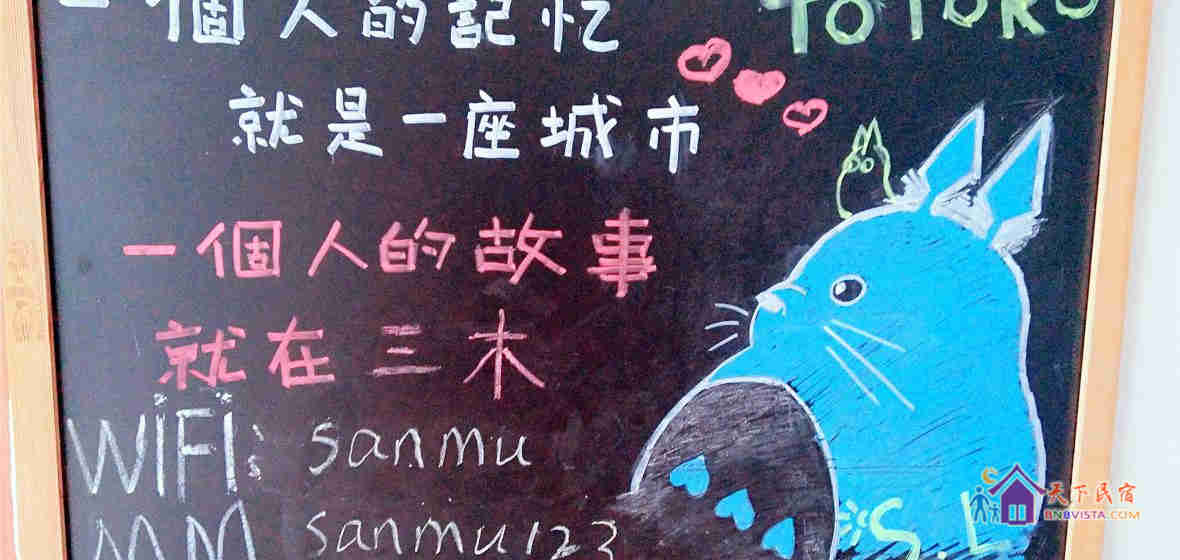 一個人的記忆
TOTORO
就是一座城市
一個人的故事
就在三木
WiFi: sanmu
MM sanmu123
S.L
天下民宿
BNBVISTA.COM